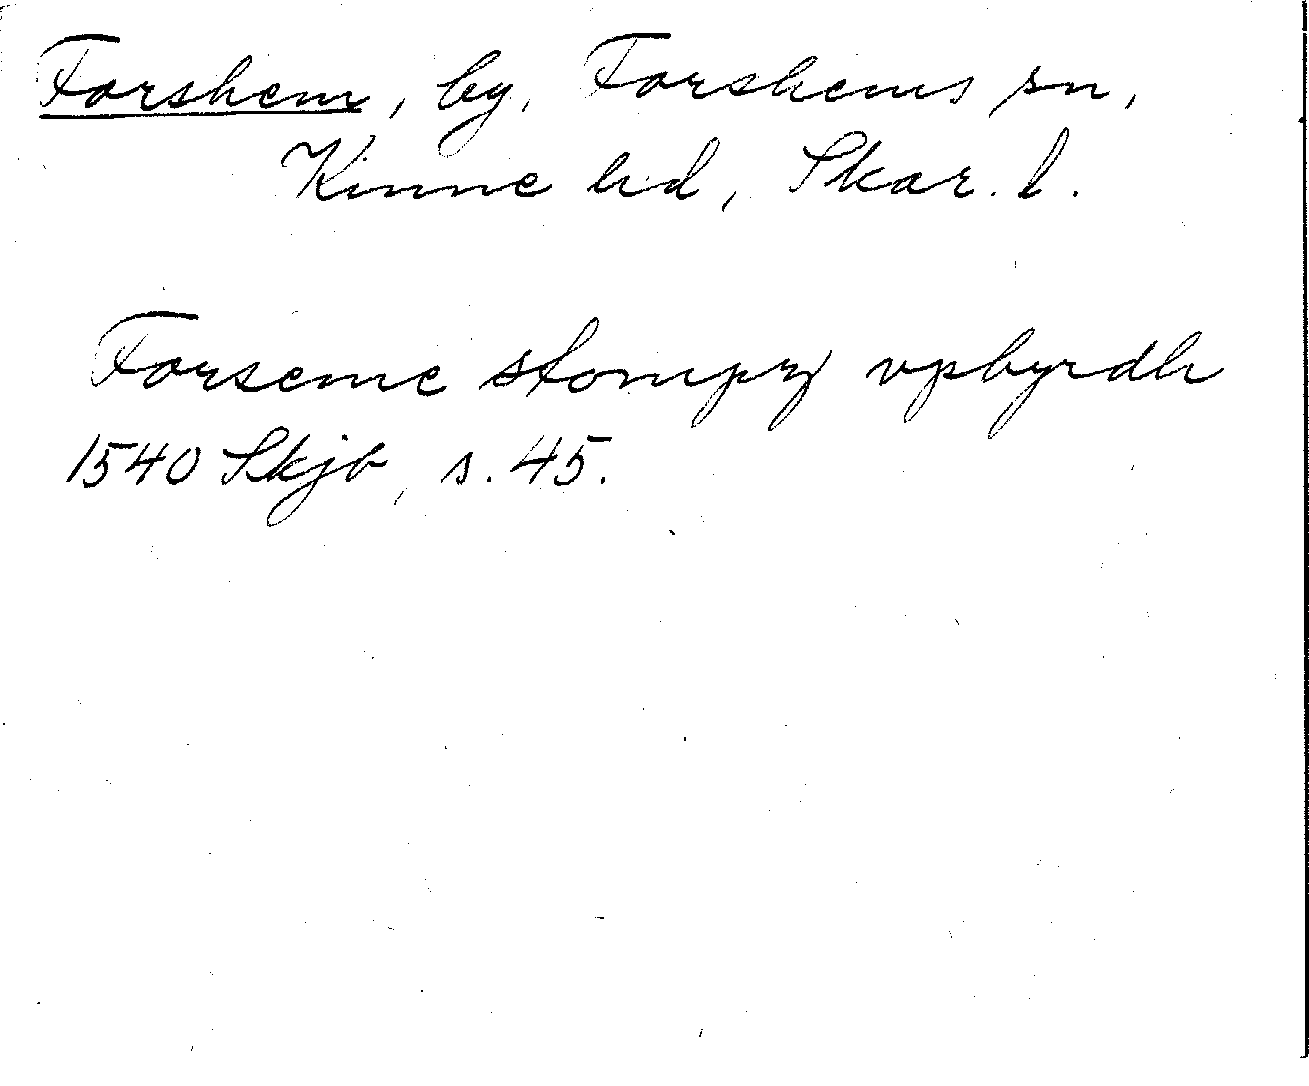 Forshem, by, Forshems sn,
Kinne hd, Skar. l.
Forseme stompz vpbyrdh
1540 Skjb, s. 45.